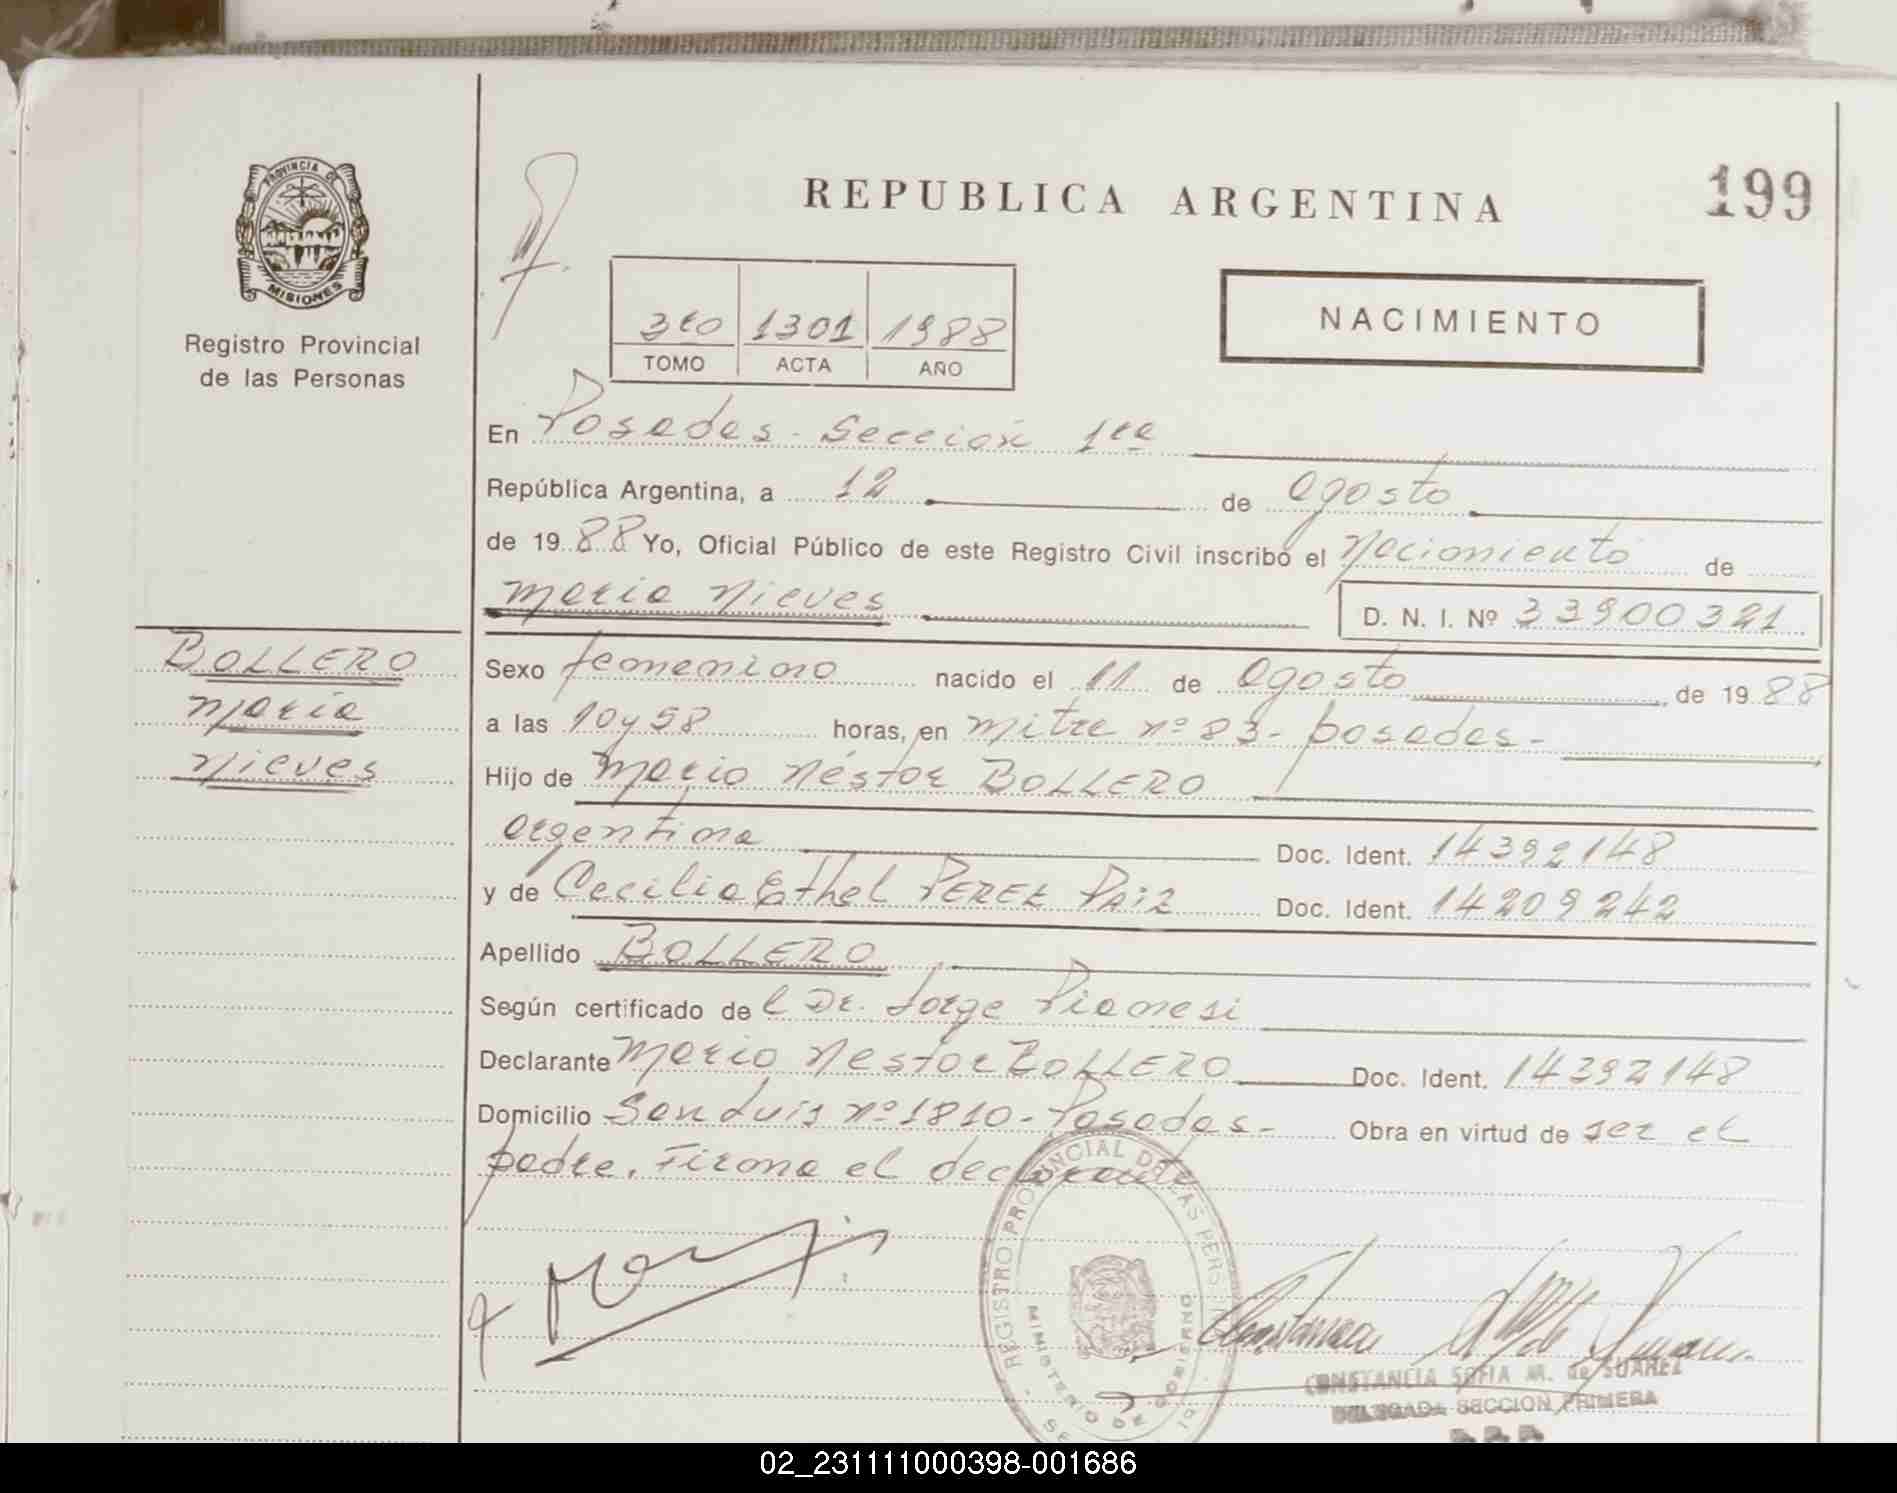 PROVINCIA DE
MISIONES
Registro Provincial
de las Personas
REPUBLICA ARGENTINA
199
3ro 1301 1988
TOMO ACTA AÑO
NACIMIENTO
En Posadas - Sección 1ra
República Argentina, a 12 de agosto
de 1988 Yo, Oficial Público de este Registro Civil inscribo el nacimiento de
maria nieves
D. N. I. Nº 33900321
BOLLERO
maria
nieves
Sexo femenino nacido el 11 de agosto, de 1988
a las 10 y 58 horas, en mitre nº 83 - posadas -
Hijo de Mario Néstor BOLLERO
argentina Doc. Ident. 14392148
y de Cecilia Ethel PEREZ PAiZ Doc. Ident. 14209242
Apellido BOLLERO
Según certificado de l Dr. Jorge Pianesi
Declarante Mario Nestor BOLLERO Doc. Ident. 14392148
Domicilio San Luis nº 1810 - Posadas - Obra en virtud de ser el
padre. Firma el declarante
REGISTRO PROVINCIAL DE LAS PERS
MINISTERIO DE GOBIERNO
CONSTANCIA SOFIA M. de SUAREZ
DELEGADA SECCION PRIMERA
02_231111000398-001686